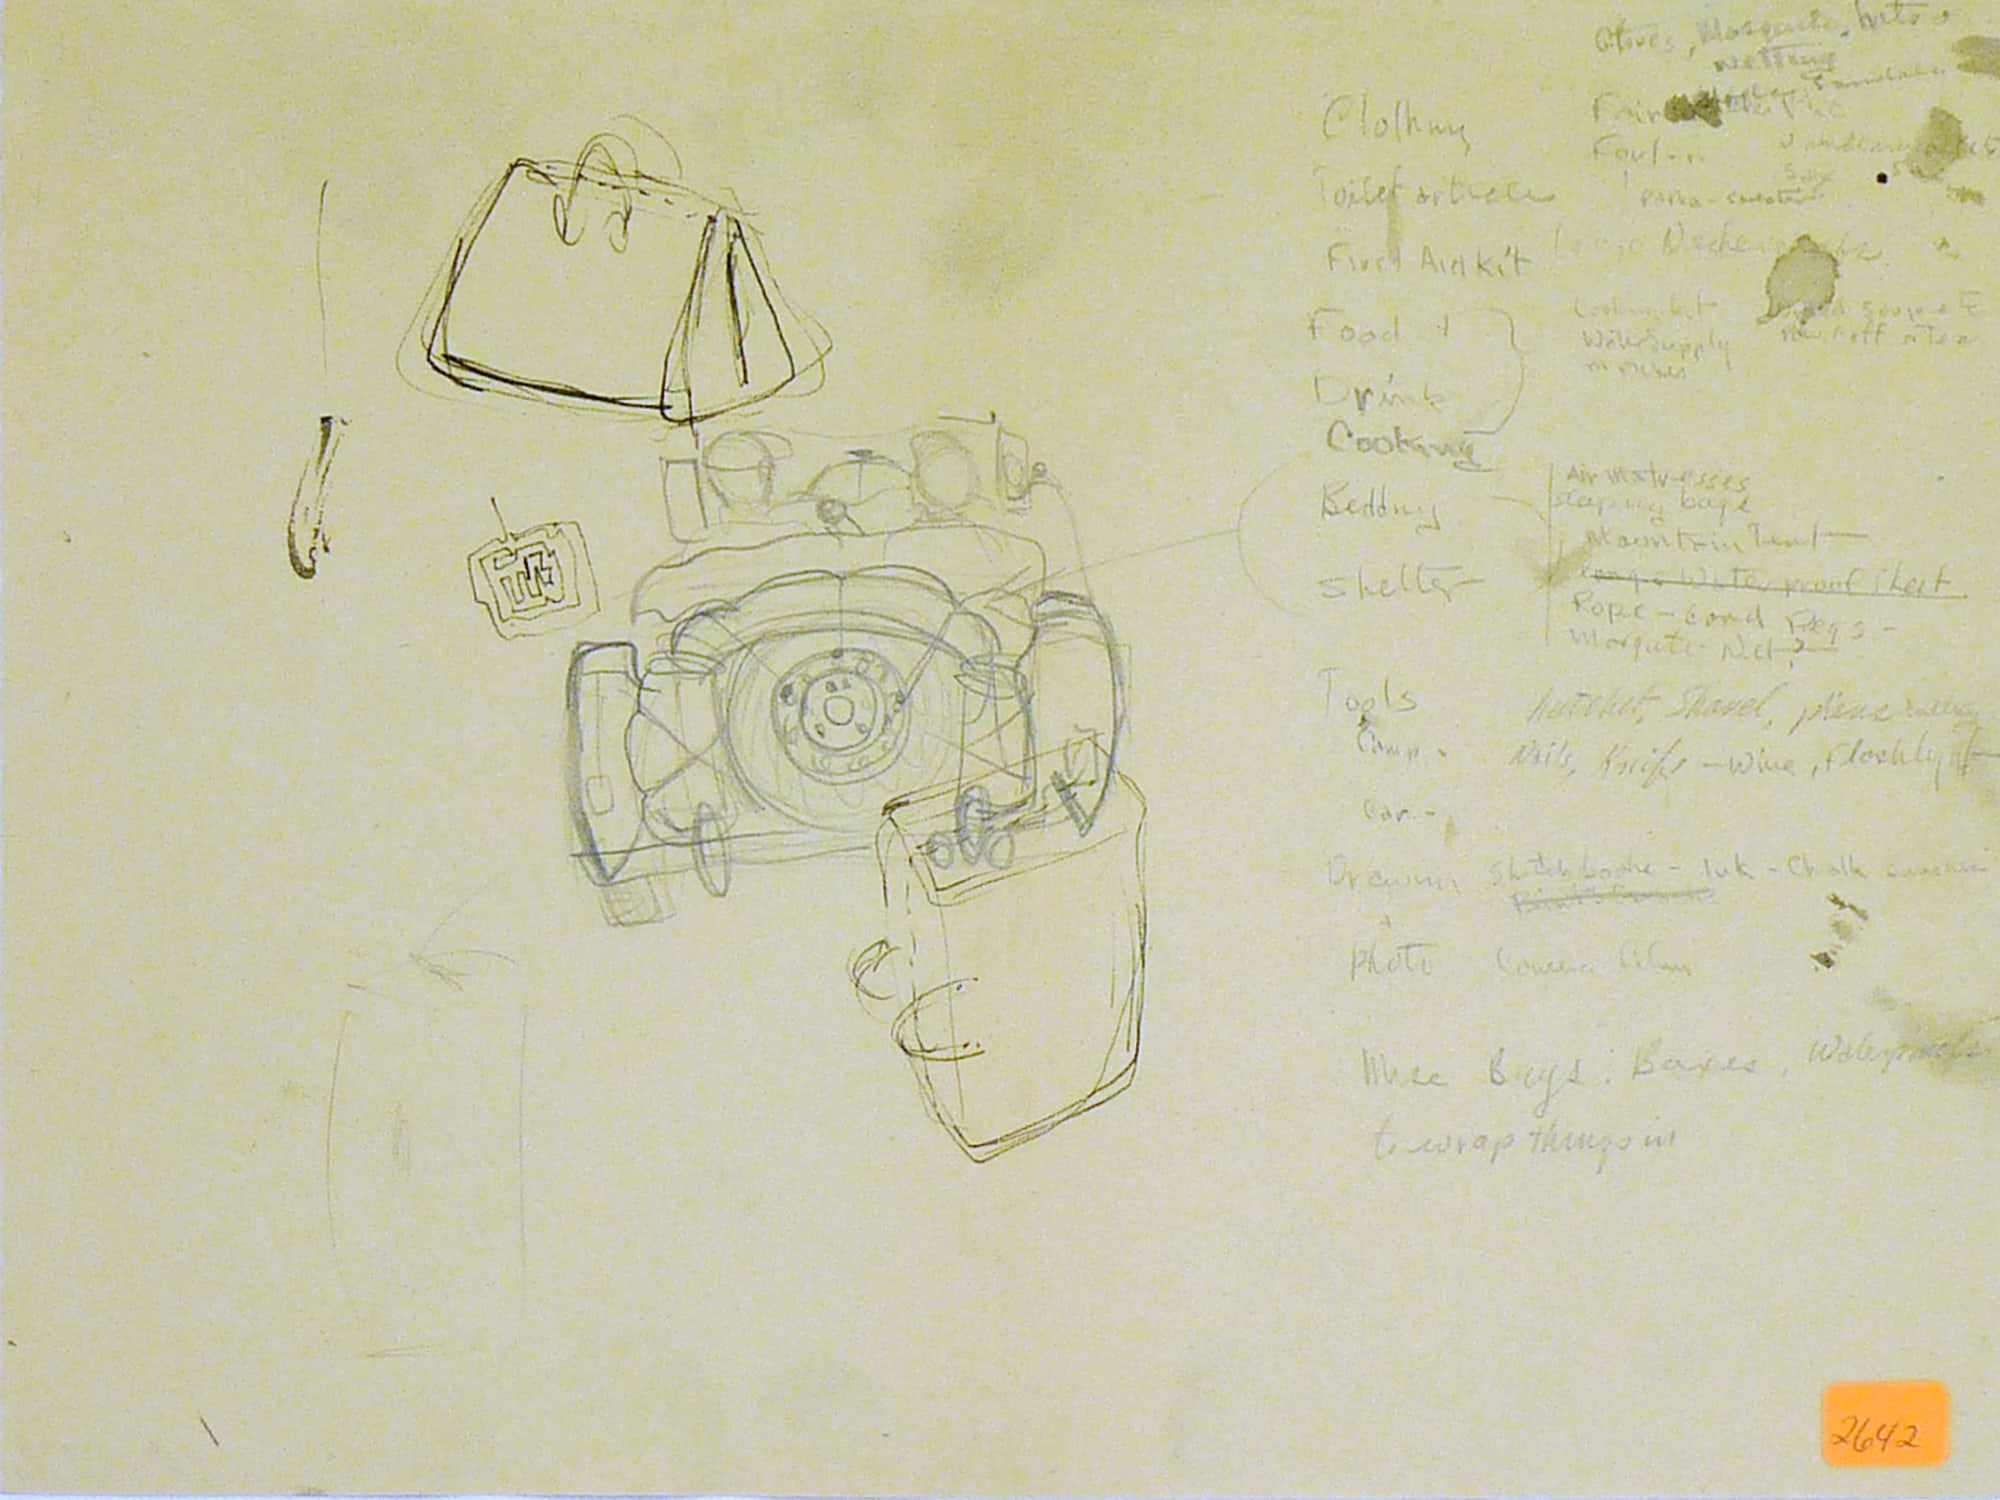 Gloves, Mosquito, hats
netting
Clothing
Fair
Foul
Toilet articles
Parka - sweater
First Aid Kit
Large
Food +
Cooking kit
Water Supply
Drink
Cooking
Air Mattresses
Sleeping bags
Bedding
Mountain Tent
Large Waterproof Sheet
Shelter
Rope - cord Pegs -
Mosquito - Net?
Tools
hatchet, Shovel, pliers
Camp -
Nails, Knife - Wire, Flashlight
Car -
Drawing Sketch books - Ink - Chalk
+
Photo Camera film
Misc Bags, Boxes, Waterproofs
to wrap things in
2642